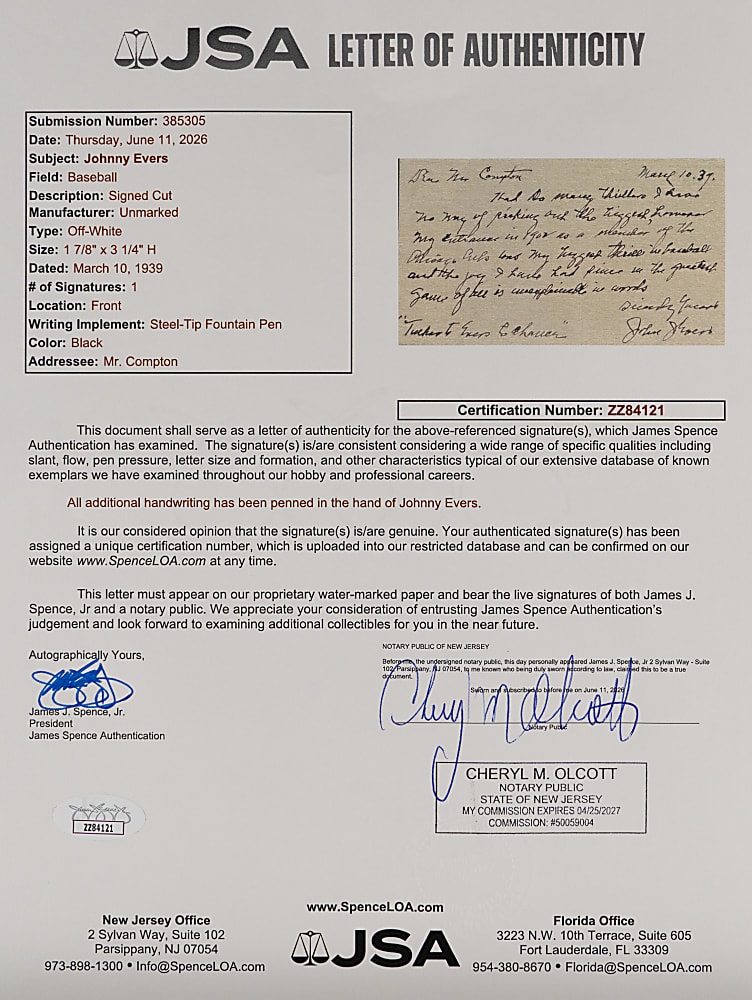 JSA LETTER OF AUTHENTICITY
Submission Number: 385305
Date: Thursday, June 11, 2026
Subject: Johnny Evers
Field: Baseball
Description: Signed Cut
Manufacturer: Unmarked
Type: Off-White
Size: 1 7/8" x 3 1/4" H
Dated: March 10, 1939
# of Signatures: 1
Location: Front
Writing Implement: Steel-Tip Fountain Pen
Color: Black
Addressee: Mr. Compton
Compton
Had so many thrillers I have
no way of picking out the biggest, however
my entrance in 1902 as a member of the
Chicago Cubs was my biggest thrill in baseball
and the joy I have had since in the greatest
game of all is unexplainable in words
Sincerely Yours
"Tinker to Evers to Chance"
John J Evers
Certification Number: ZZ84121
This document shall serve as a letter of authenticity for the above-referenced signature(s), which James Spence
Authentication has examined. The signature(s) is/are consistent considering a wide range of specific qualities including
slant, flow, pen pressure, letter size and formation, and other characteristics typical of our extensive database of known
exemplars we have examined throughout our hobby and professional careers.
All additional handwriting has been penned in the hand of Johnny Evers.
It is our considered opinion that the signature(s) is/are genuine. Your authenticated signature(s) has been
assigned a unique certification number, which is uploaded into our restricted database and can be confirmed on our
website www.SpenceLOA.com at any time.
This letter must appear on our proprietary water-marked paper and bear the live signatures of both James J.
Spence, Jr and a notary public. We appreciate your consideration of entrusting James Spence Authentication's
judgement and look forward to examining additional collectibles for you in the near future.
Autographically Yours,
James J. Spence, Jr.
President
James Spence Authentication
NOTARY PUBLIC OF NEW JERSEY
Before me, the undersigned notary public, this day personally appeared James J. Spence, Jr 2 Sylvan Way - Suite
102, Parsippany, NJ 07054, to me known who being duly sworn according to law, claimed this to be a true
document.
Sworn and subscribed to before me on June 11, 2026
Cheryl M Olcott
Notary Public
CHERYL M. OLCOTT
NOTARY PUBLIC
STATE OF NEW JERSEY
MY COMMISSION EXPIRES 04/25/2027
COMMISSION: #50059004
ZZ84121
www.SpenceLOA.com
New Jersey Office
2 Sylvan Way, Suite 102
Parsippany, NJ 07054
973-898-1300 • Info@SpenceLOA.com
JSA
Florida Office
3223 N.W. 10th Terrace, Suite 605
Fort Lauderdale, FL 33309
954-380-8670 • Florida@SpenceLOA.com